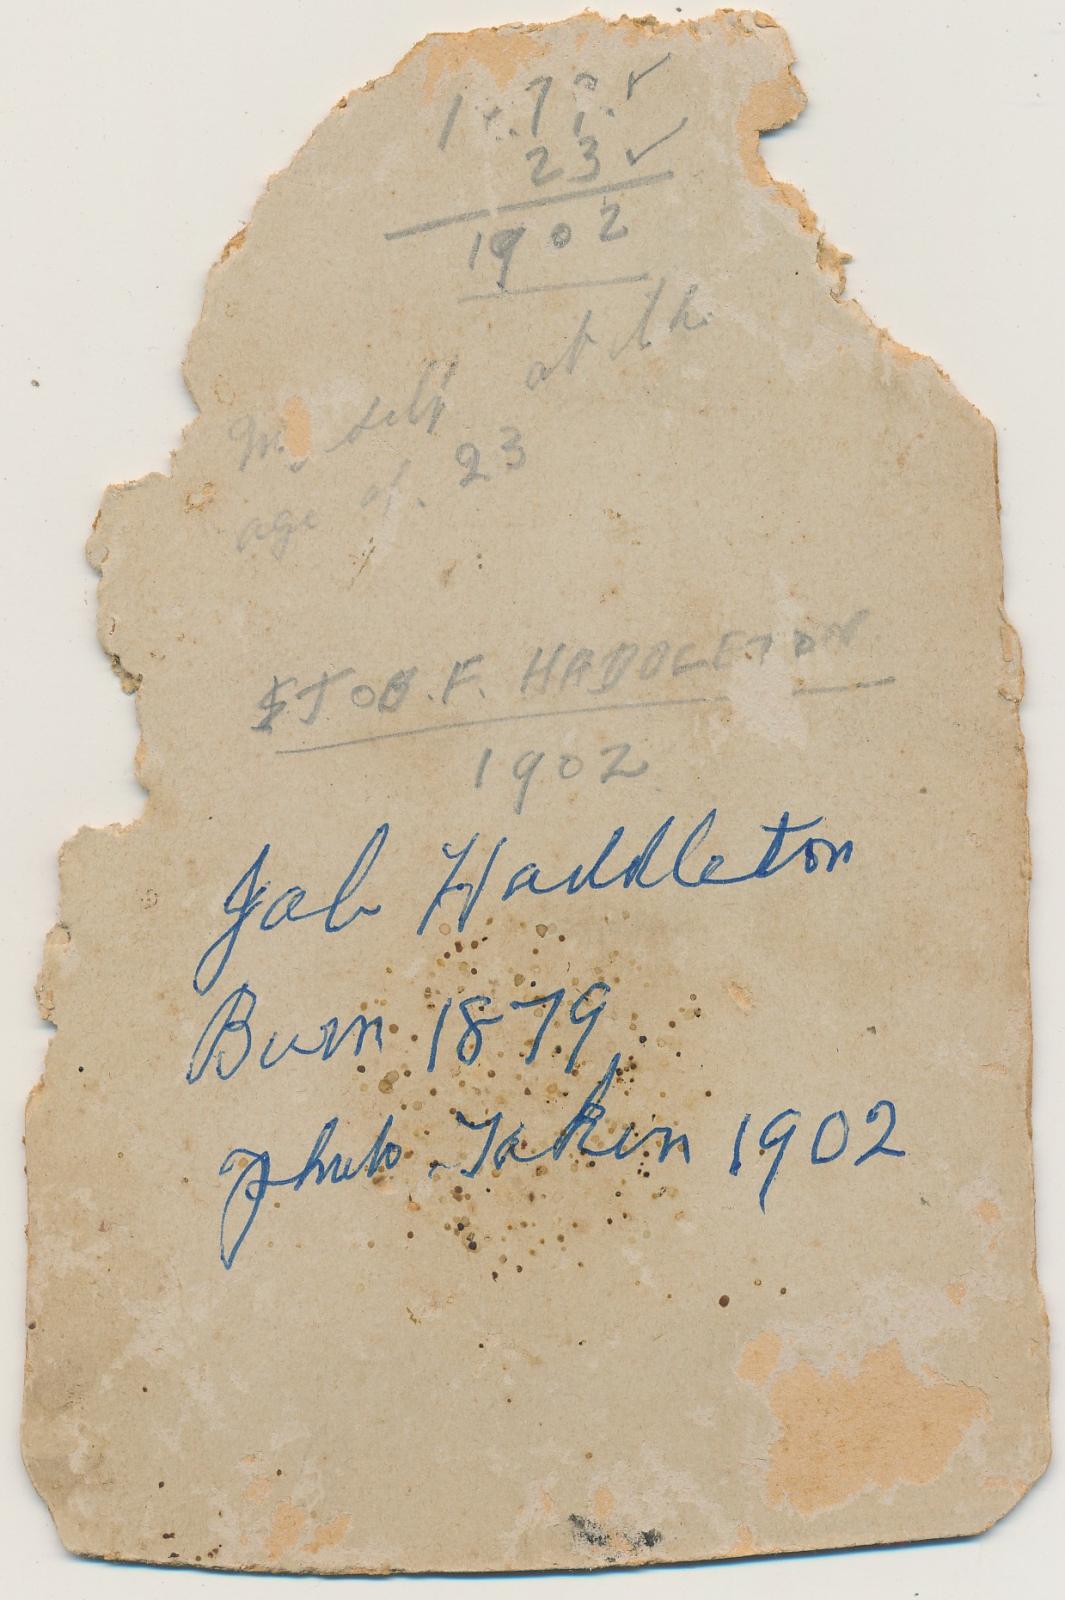 1879 ✓
23 ✓
1902
My self at the
age of. 23
JOB. F. HADDLETON
1902
Job Haddleton
Born 1879
photo Taken 1902